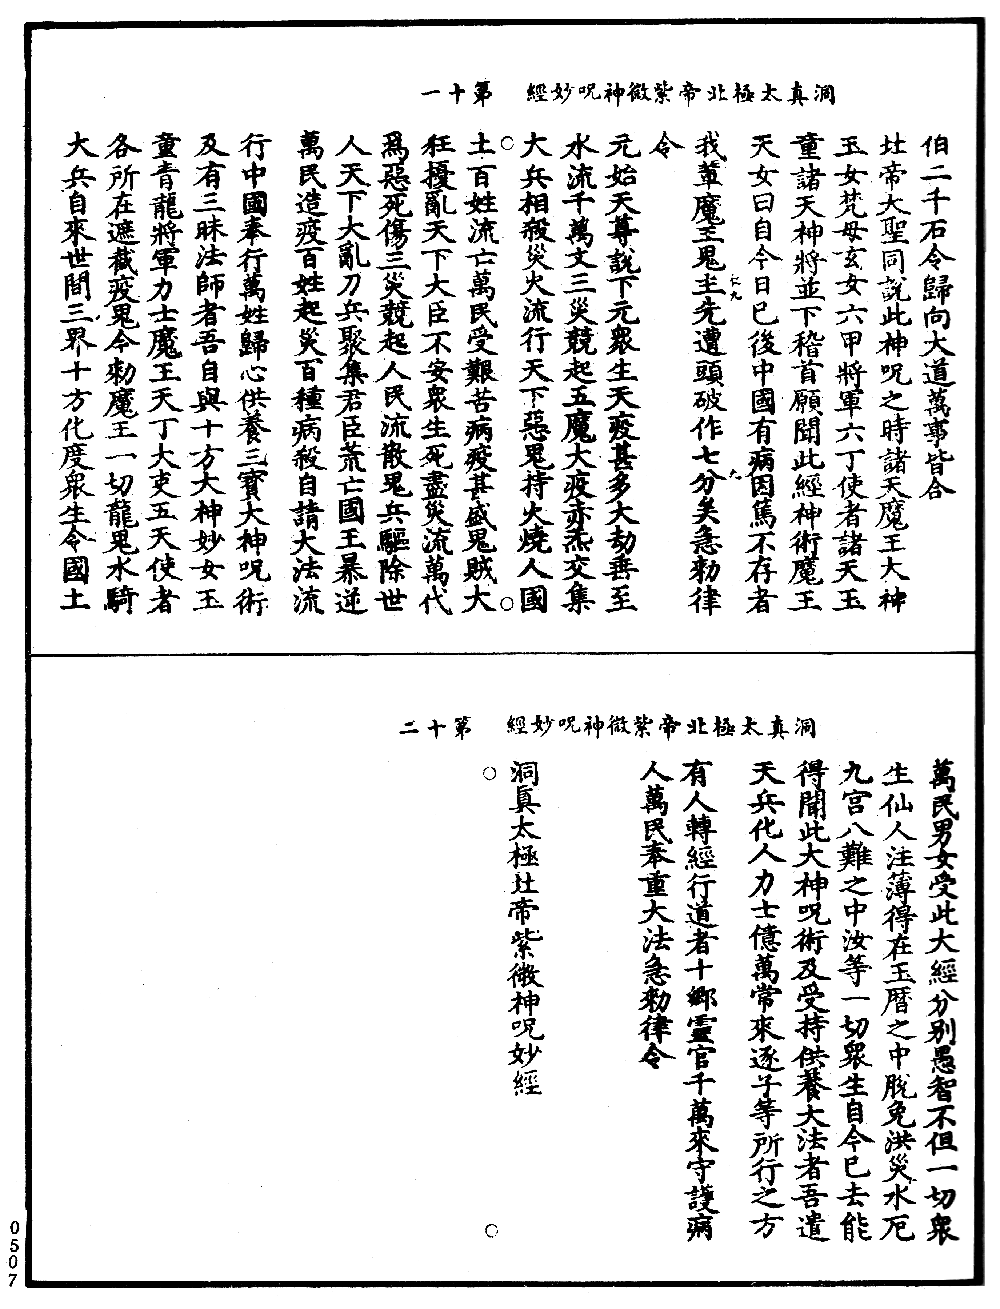 洞真太極北帝紫微神呪妙經　第十一
伯二千石令歸向大道萬事皆合
北帝大聖同說此神呪之時諸天魔王大神
玉女梵母玄女六甲將軍六丁使者諸天玉
童諸天神將並下稽首願聞此經神術魔王
天女曰自今日已後中國有病因篤不存者
我輩魔王鬼主先遭頭破作七分矣急勑律
令
元始天尊說下元衆生天疫甚多大劫垂至
水流千萬丈三災競起五魔大疫亦炁交集
大兵相殺災火流行天下惡鬼持火燒人國
土百姓流亡萬民受艱苦病疫甚盛鬼賊大
狂擾亂天下大臣不安衆生死盡災流萬代
爲惡死傷三災競起人民流散鬼兵驅除世
人天下大亂刀兵聚集君臣荒亡國王暴逆
萬民造疫百姓起災百種病殺自請大法流
行中國奉行萬姓歸心供養三寶大神呪術
及有三昧法師者吾自與十方大神妙女玉
童青龍將軍力士魔王天丁大吏五天使者
各所在遮截疫鬼令勑魔王一切龍鬼水騎
大兵自來世間三界十方化度衆生令國土
洞真太極北帝紫微神呪妙經　第十二
萬民男女受此大經分別愚智不但一切衆
生仙人注薄得在玉曆之中脫免洪災水厄
九宮八難之中汝等一切衆生自今已去能
得聞此大神呪術及受持供養大法者吾遣
天兵化人力士億萬常來逐子等所行之方
有人轉經行道者十鄉靈官千萬來守護病
人萬民奉重大法急勑律令
洞真太極北帝紫微神呪妙經
0507